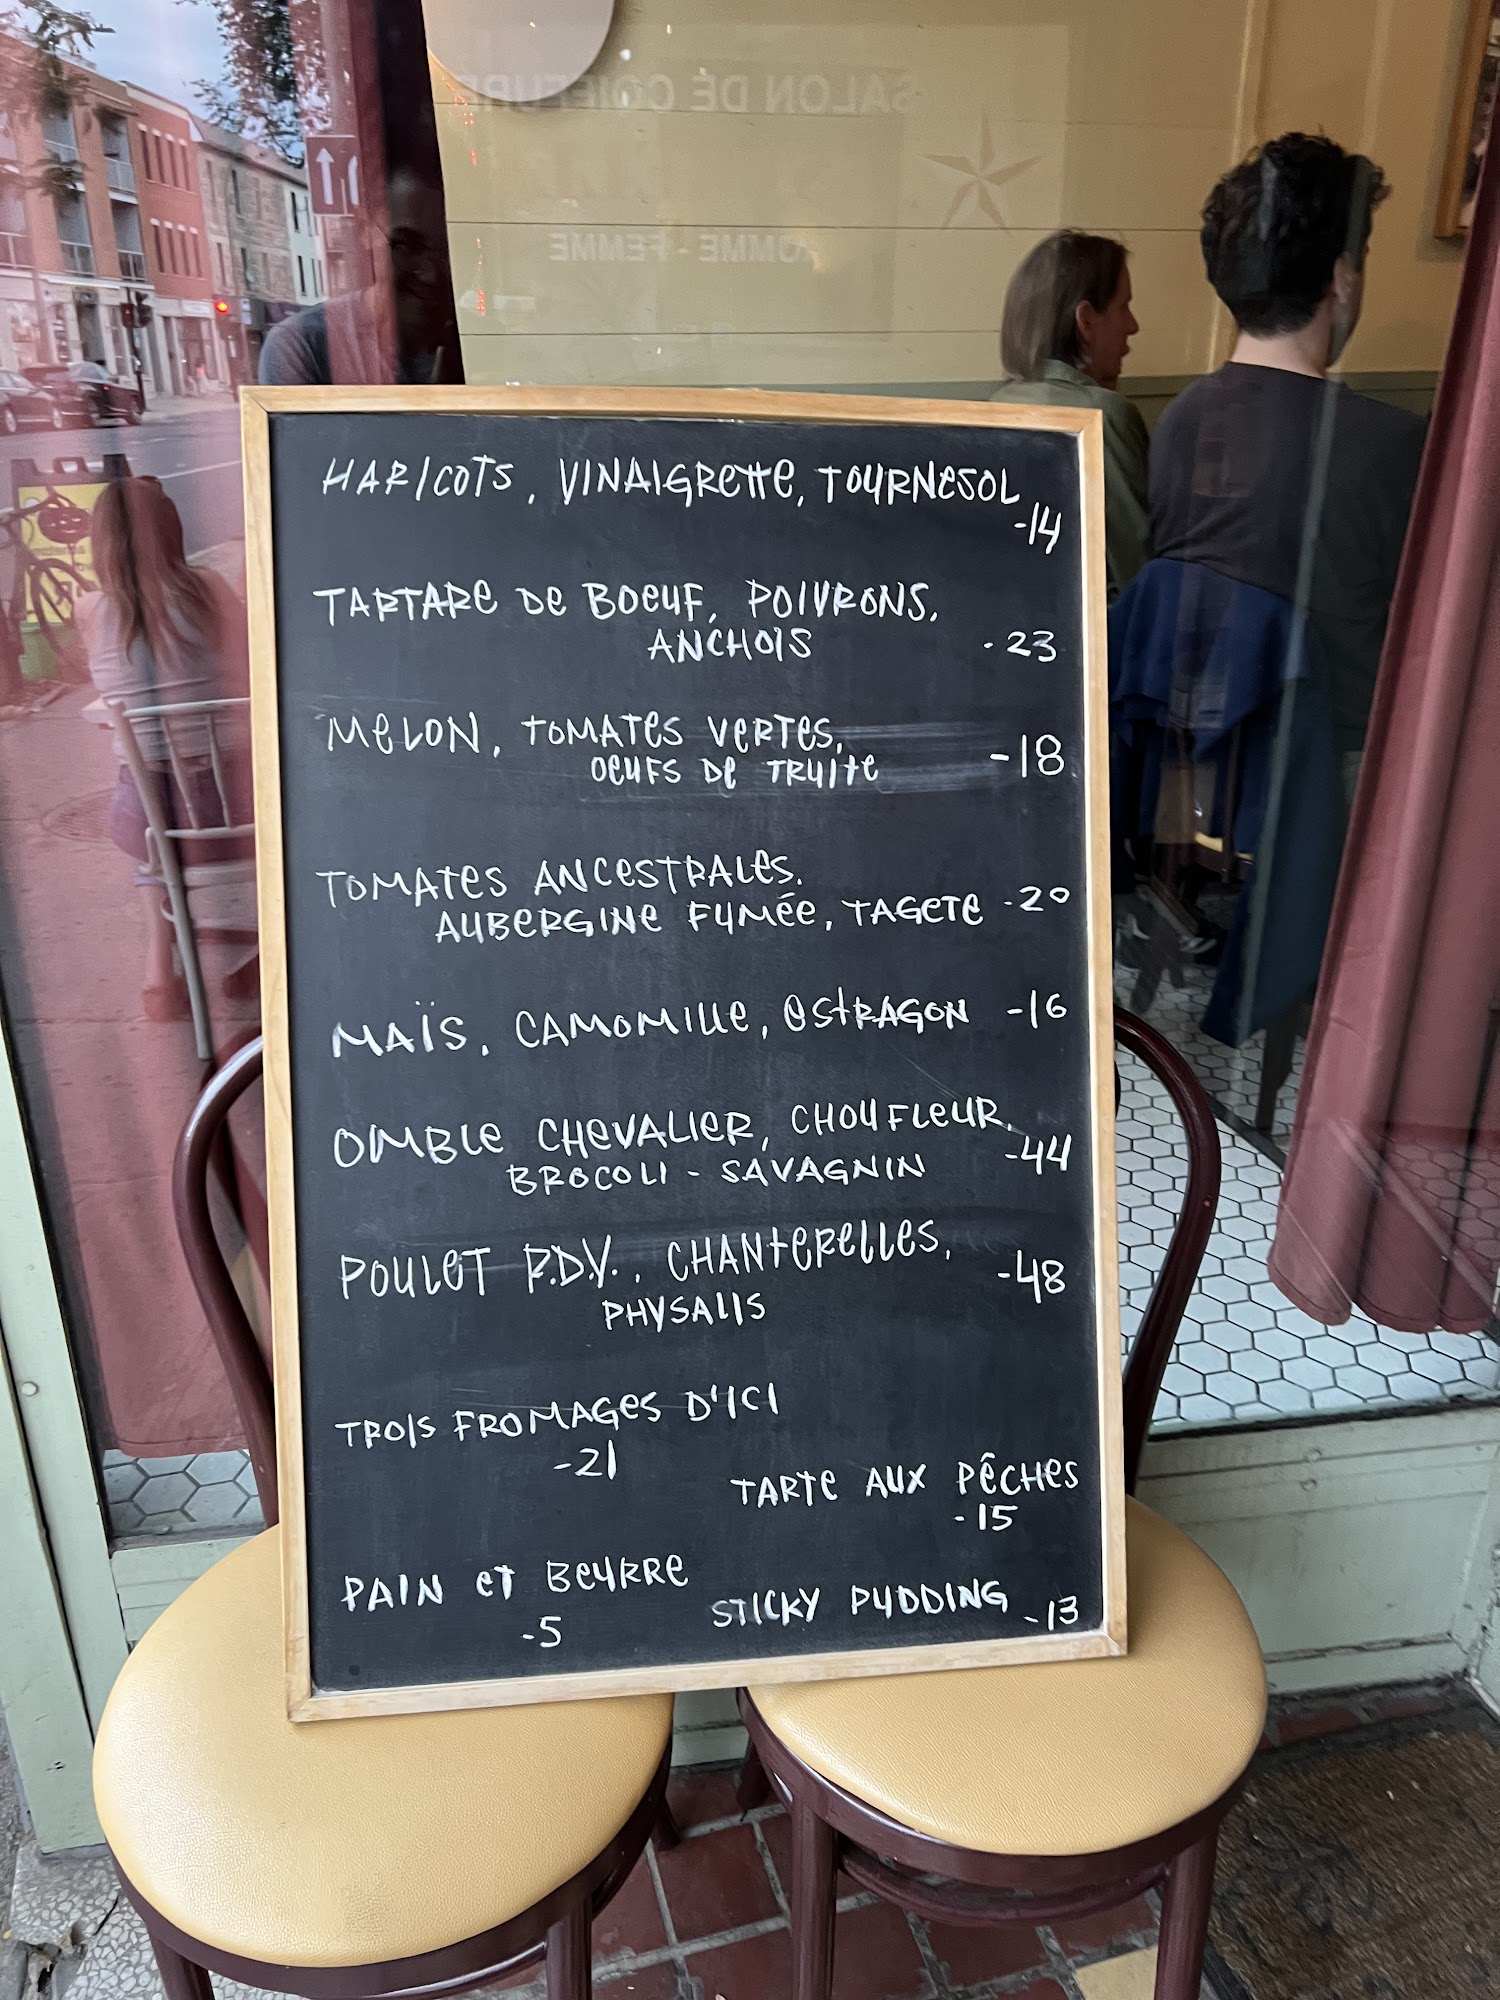 SALON DE COIFFURE
HOMME - FEMME
HARICOTS, VINAIGRETTE, TOURNESOL
-14
TARTARE DE BOEUF, POIVRONS,
ANCHOIS -23
MELON, TOMATES VERTES,
OEUFS DE TRUITE -18
TOMATES ANCESTRALES,
AUBERGINE FUMÉE, TAGETE -20
MAÏS, CAMOMILLE, ESTRAGON -16
OMBLE CHEVALIER, CHOUFLEUR,
BROCOLI - SAVAGNIN -44
POULET P.D.V., CHANTERELLES,
PHYSALIS -48
TROIS FROMAGES D'ICI
-21
TARTE AUX PÊCHES
-15
PAIN ET BEURRE
-5
STICKY PUDDING -13